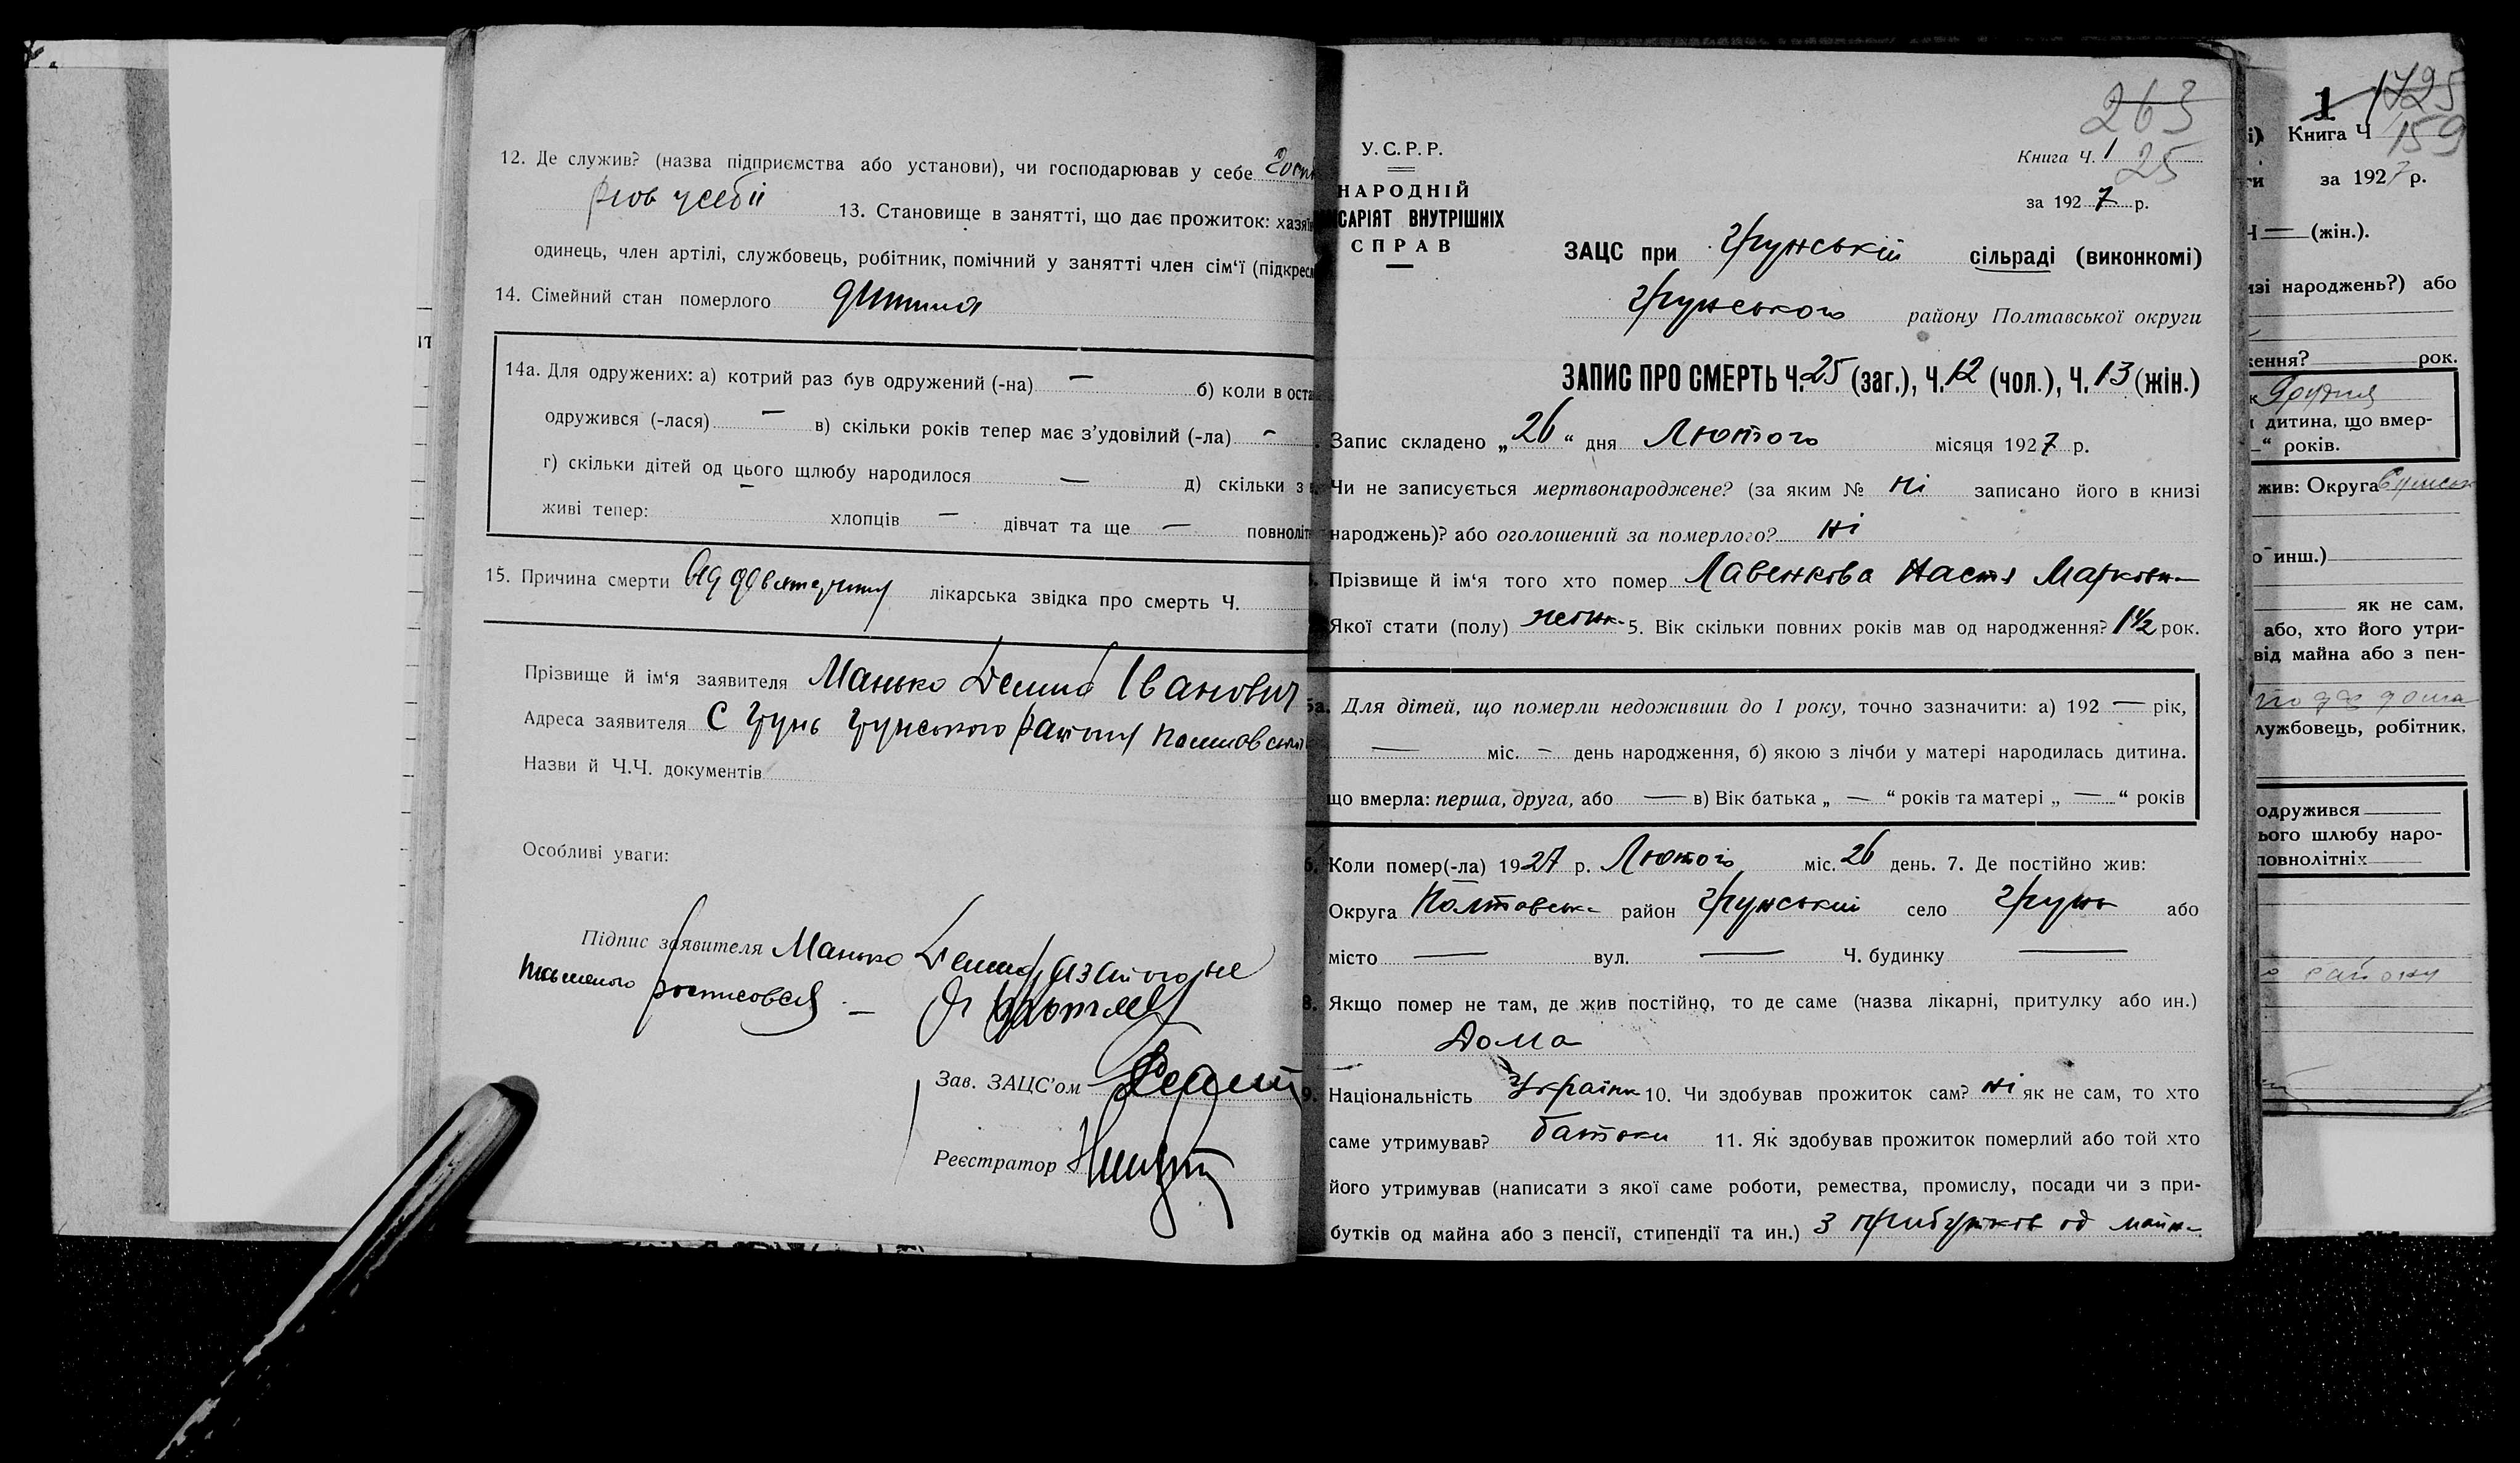 12. Де служив? (назва підприємства або установи), чи господарював у себе
рюв у себіі 13. Становище в занятті, що дає прожиток: хазяїн
одинець, член артілі, службовець, робітник, помічний у занятті член сім'ї (підкресл
14. Сімейний стан померлого дитина
14а. Для одружених: а) котрий раз був одружений (-на) — б) коли в оста
одружився (-лася) — в) скільки років тепер має з'удовілий (-ла) -
г) скільки дітей од цього щлюбу народилося — д) скільки з
живі тепер: хлопців — дівчат та ще — повноліт
15. Причина смерти Від лікарська звідка про смерть Ч.
Прізвище й ім'я заявителя Манько Демид Іванович
Адреса заявителя С Грунь Грунського району Полтавської
Назви й Ч.Ч. документів
Особливі уваги:
Підпис заявителя Манько Демид а за його не
росписовся —
Зав. ЗАЦС'ом
Реєстратор
263
У.С.Р.Р.
Книга Ч. 1
25
НАРОДНІЙ
САРІЯТ ВНУТРІШНІХ
СПРАВ
за 1927 р.
ЗАЦС при Грунській сільраді (виконкомі)
Грунського району Полтавської округи
ЗАПИС ПРО СМЕРТЬ Ч. 25 (заг.), Ч. 12 (чол.), Ч. 13 (жін.)
Запис складено „26“ дня Лютого місяця 1927 р.
Чи не записується мертвонароджене? (за яким № ні записано його в книзі
народжень)? або оголошений за померлого? ні
Прізвище й ім'я того хто помер Лавенкова Настя Марковн
Якої стати (полу) жіноч. 5. Вік скільки повних років мав од народження? 1½ рок.
5а. Для дітей, що померли недоживши до 1 року, точно зазначити: а) 192 — рік,
— міс. — день народження, б) якою з лічби у матері народилась дитина.
що вмерла: перша, друга, або — в) Вік батька „ — “ років та матері „ — “ років
6. Коли помер(-ла) 1927 р. Лютого міс. 26 день. 7. Де постійно жив:
Округа Полтавськ район Грунський село Грунь або
місто — вул. — Ч. будинку —
8. Якщо помер не там, де жив постійно, то де саме (назва лікарні, притулку або ин.)
Дома
9. Національність Українк 10. Чи здобував прожиток сам? ні як не сам, то хто
саме утримував? батьки 11. Як здобував прожиток померлий або той хто
його утримував (написати з якої саме роботи, ремества, промислу, посади чи з при-
бутків од майна або з пенсії, стипендії та ин.) з прибутків од майн
1
Книга Ч
159
за 1927 р.
Ч — (жін.).
изі народжень?) або
ження? рок.
Грудня
дитина, що вмер-
“ років.
жив: Округа Сумськ
о инш.)
як не сам,
або, хто його утри-
від майна або з пен-
лужбовець, робітник,
одружився
ього шлюбу наро-
повнолітніх
району